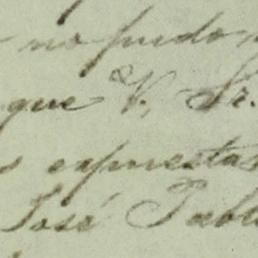 no pudo
que V. Sr.
expuestas
José Pabl